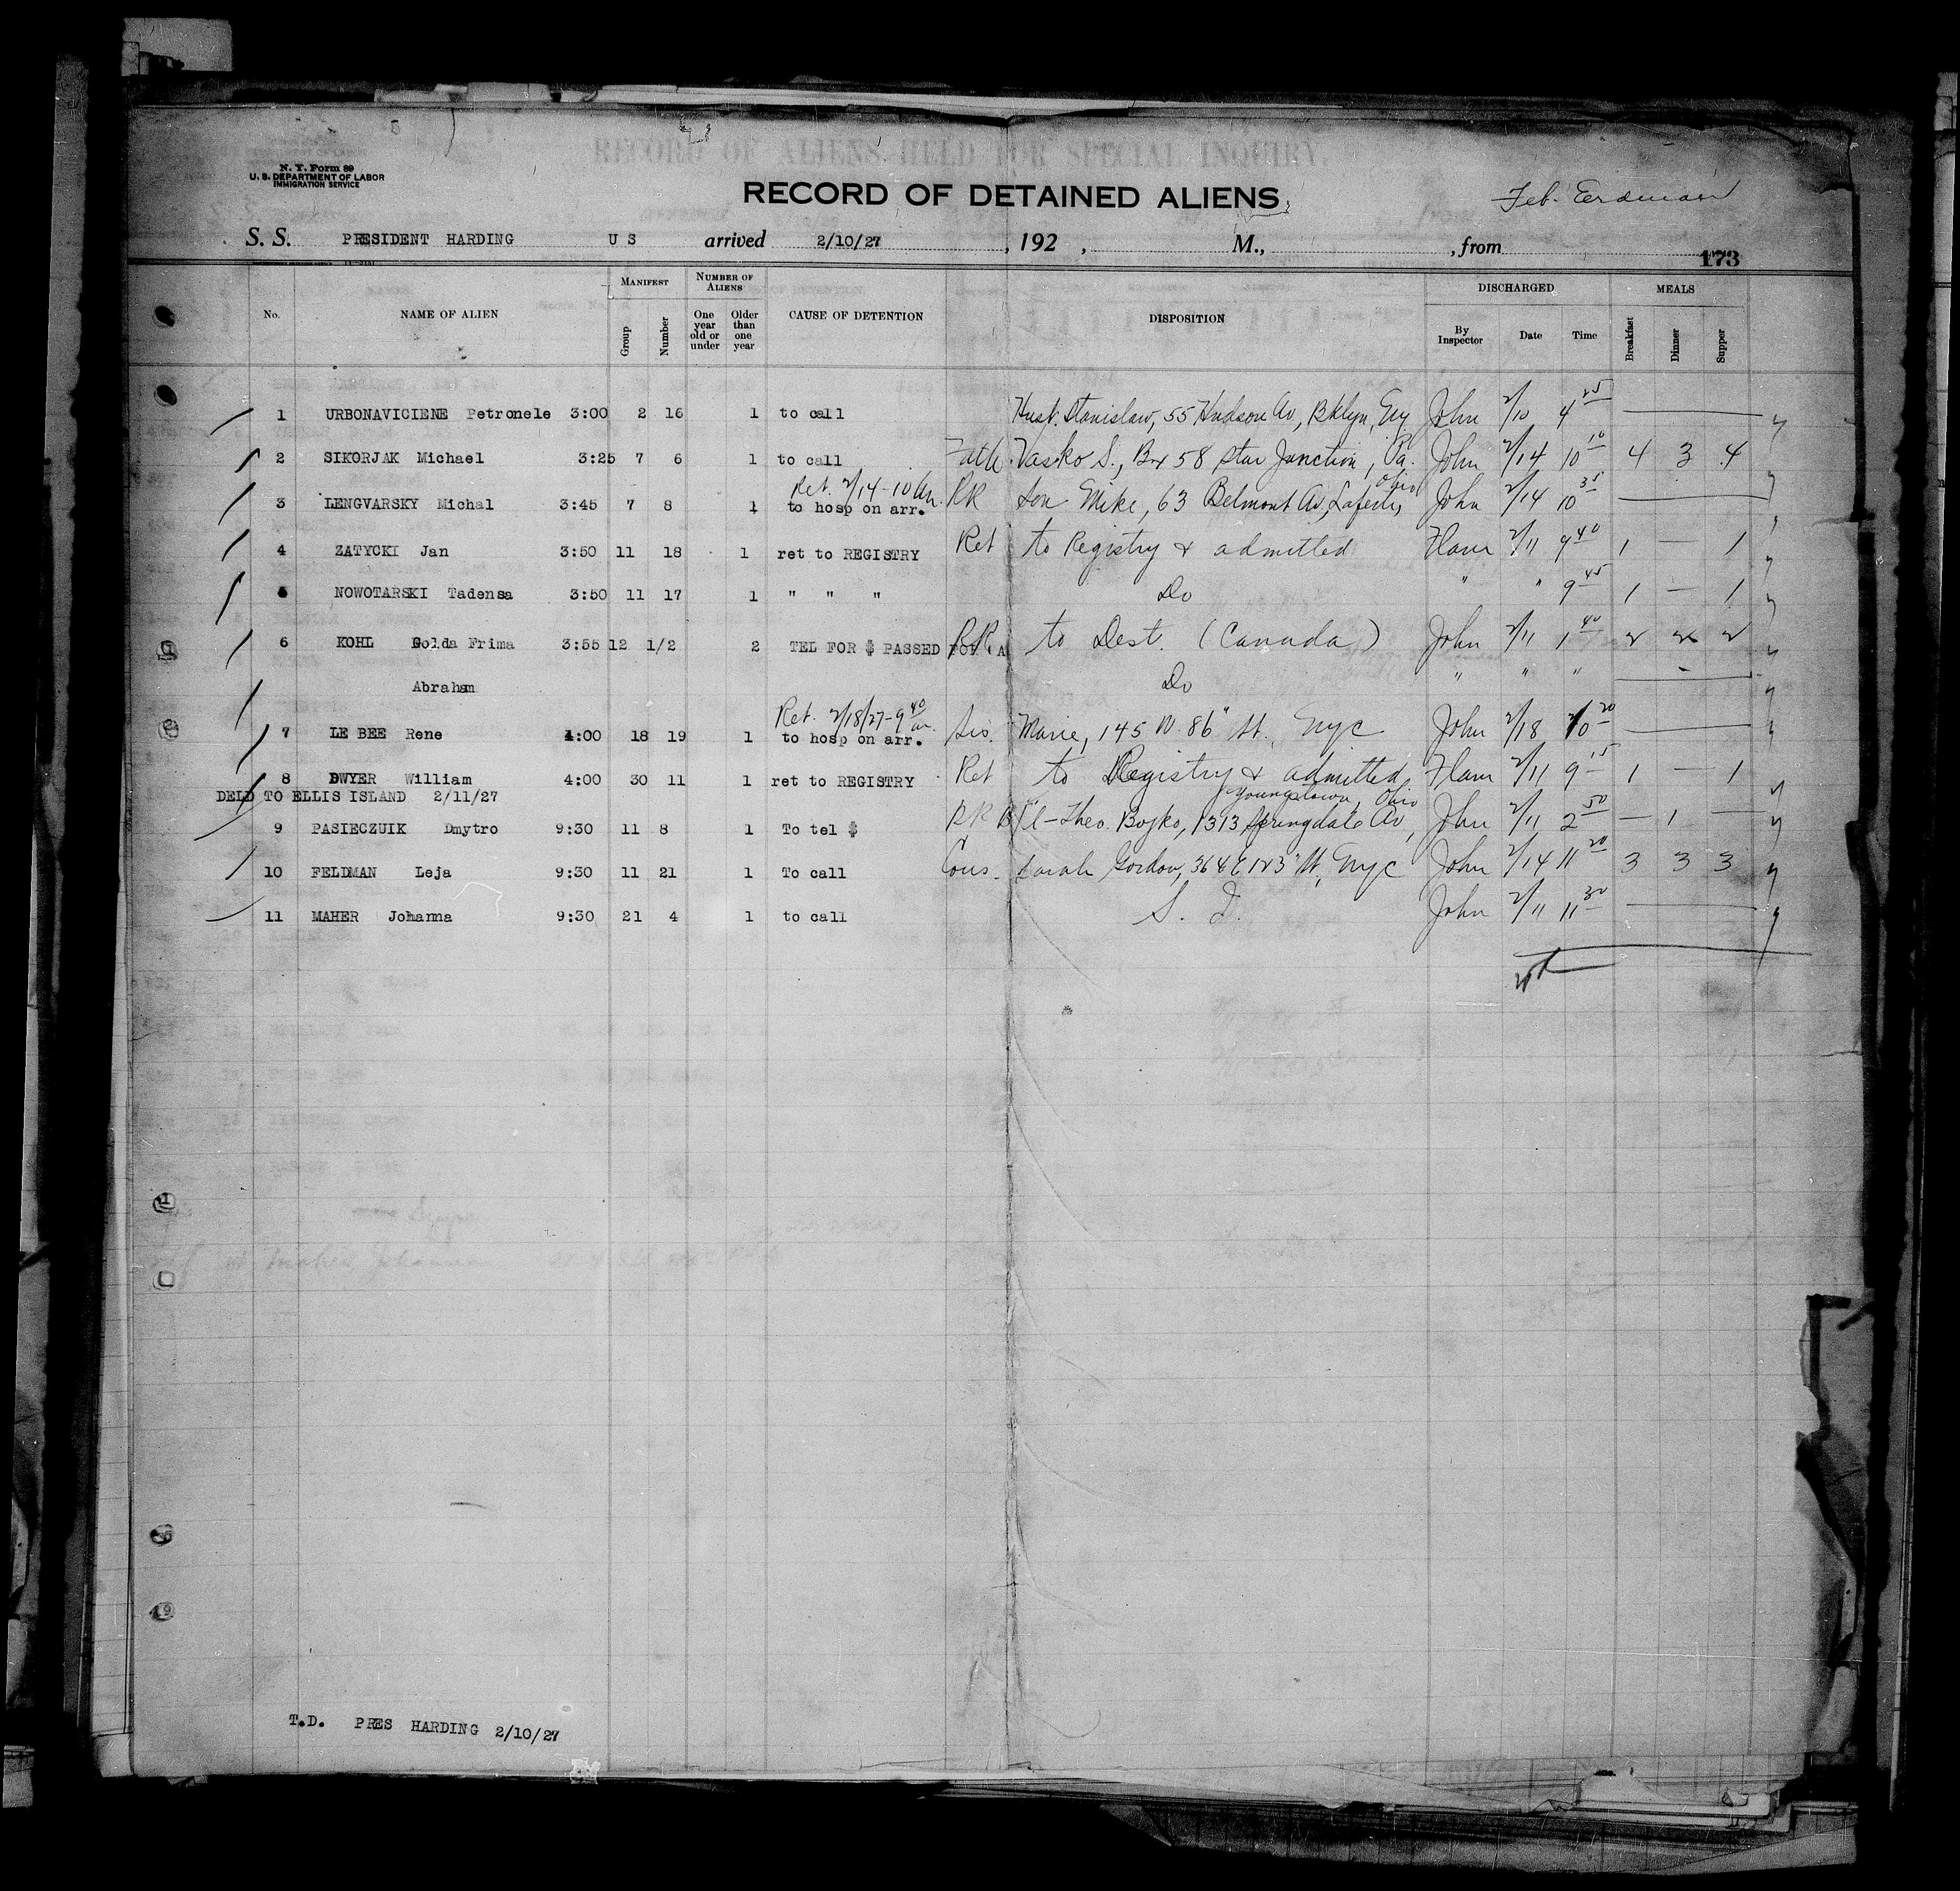 RECORD OF ALIENS HELD FOR SPECIAL INQUIRY.
N. Y. Form 89
U. S. DEPARTMENT OF LABOR
IMMIGRATION SERVICE
RECORD OF DETAINED ALIENS
Feb. Erdman
S. S. PRESIDENT HARDING U S arrived 2/10/27 , 192 , M., , from
173
No. NAME OF ALIEN MANIFEST Group Number NUMBER OF ALIENS One year old or under Older than one year CAUSE OF DETENTION DISPOSITION DISCHARGED By Inspector Date Time MEALS Breakfast Dinner Supper
1 URBONAVICIENE Petronele 3:00 2 16 1 to call Husb. Stanislaw, 55 Hudson Av, Bklyn, Ny John 2/10 4 25
2 SIKORJAK Michael 3:25 7 6 1 to call Fath Vasko S., Bx 58 Star Junction, Pa. John 2/14 10 10 4 3 4
Ret. 2/14-10 am. Ohio
3 LENGVARSKY Michal 3:45 7 8 1 to hosp on arr. RR Son Mike, 63 Belmont Av, John 2/14 10 35
4 ZATYCKI Jan 3:50 11 18 1 ret to REGISTRY Ret to Registry & admitted Flam 2/11 9 40 1 — 1
5 NOWOTARSKI Tadensa 3:50 11 17 1 " " " Do " " 9 45 1 — 1
6 KOHL Golda Frima 3:55 12 1/2 2 TEL FOR $ PASSED FOR CA RR to Dest. (Canada) John 2/11 1 40 2 2 2
Abraham Do " " "
Ret. 2/18/27-9 40 am.
7 LE BEE Rene 4:00 18 19 1 to hosp on arr. Sis. Marie, 145 W. 86" St., Nyc John 2/18 10 20
8 DWYER William 4:00 30 11 1 ret to REGISTRY Ret to Registry & admitted Flam 2/11 9 15 1 — 1
DELD TO ELLIS ISLAND 2/11/27 Youngstown, Ohio
9 PASIECZUIK Dmytro 9:30 11 8 1 To tel $ RR B/l-Theo. Bojko, 1313 Springdale Av, John 2/11 2 50 — 1 —
10 FELDMAN Leja 9:30 11 21 1 To call Cous. Sarah Gordon, 364 E 123" St, Nyc John 2/14 11 20 3 3 3
11 MAHER Johanna 9:30 21 4 1 to call S. I. John 2/11 11 30
T.D. PRES HARDING 2/10/27